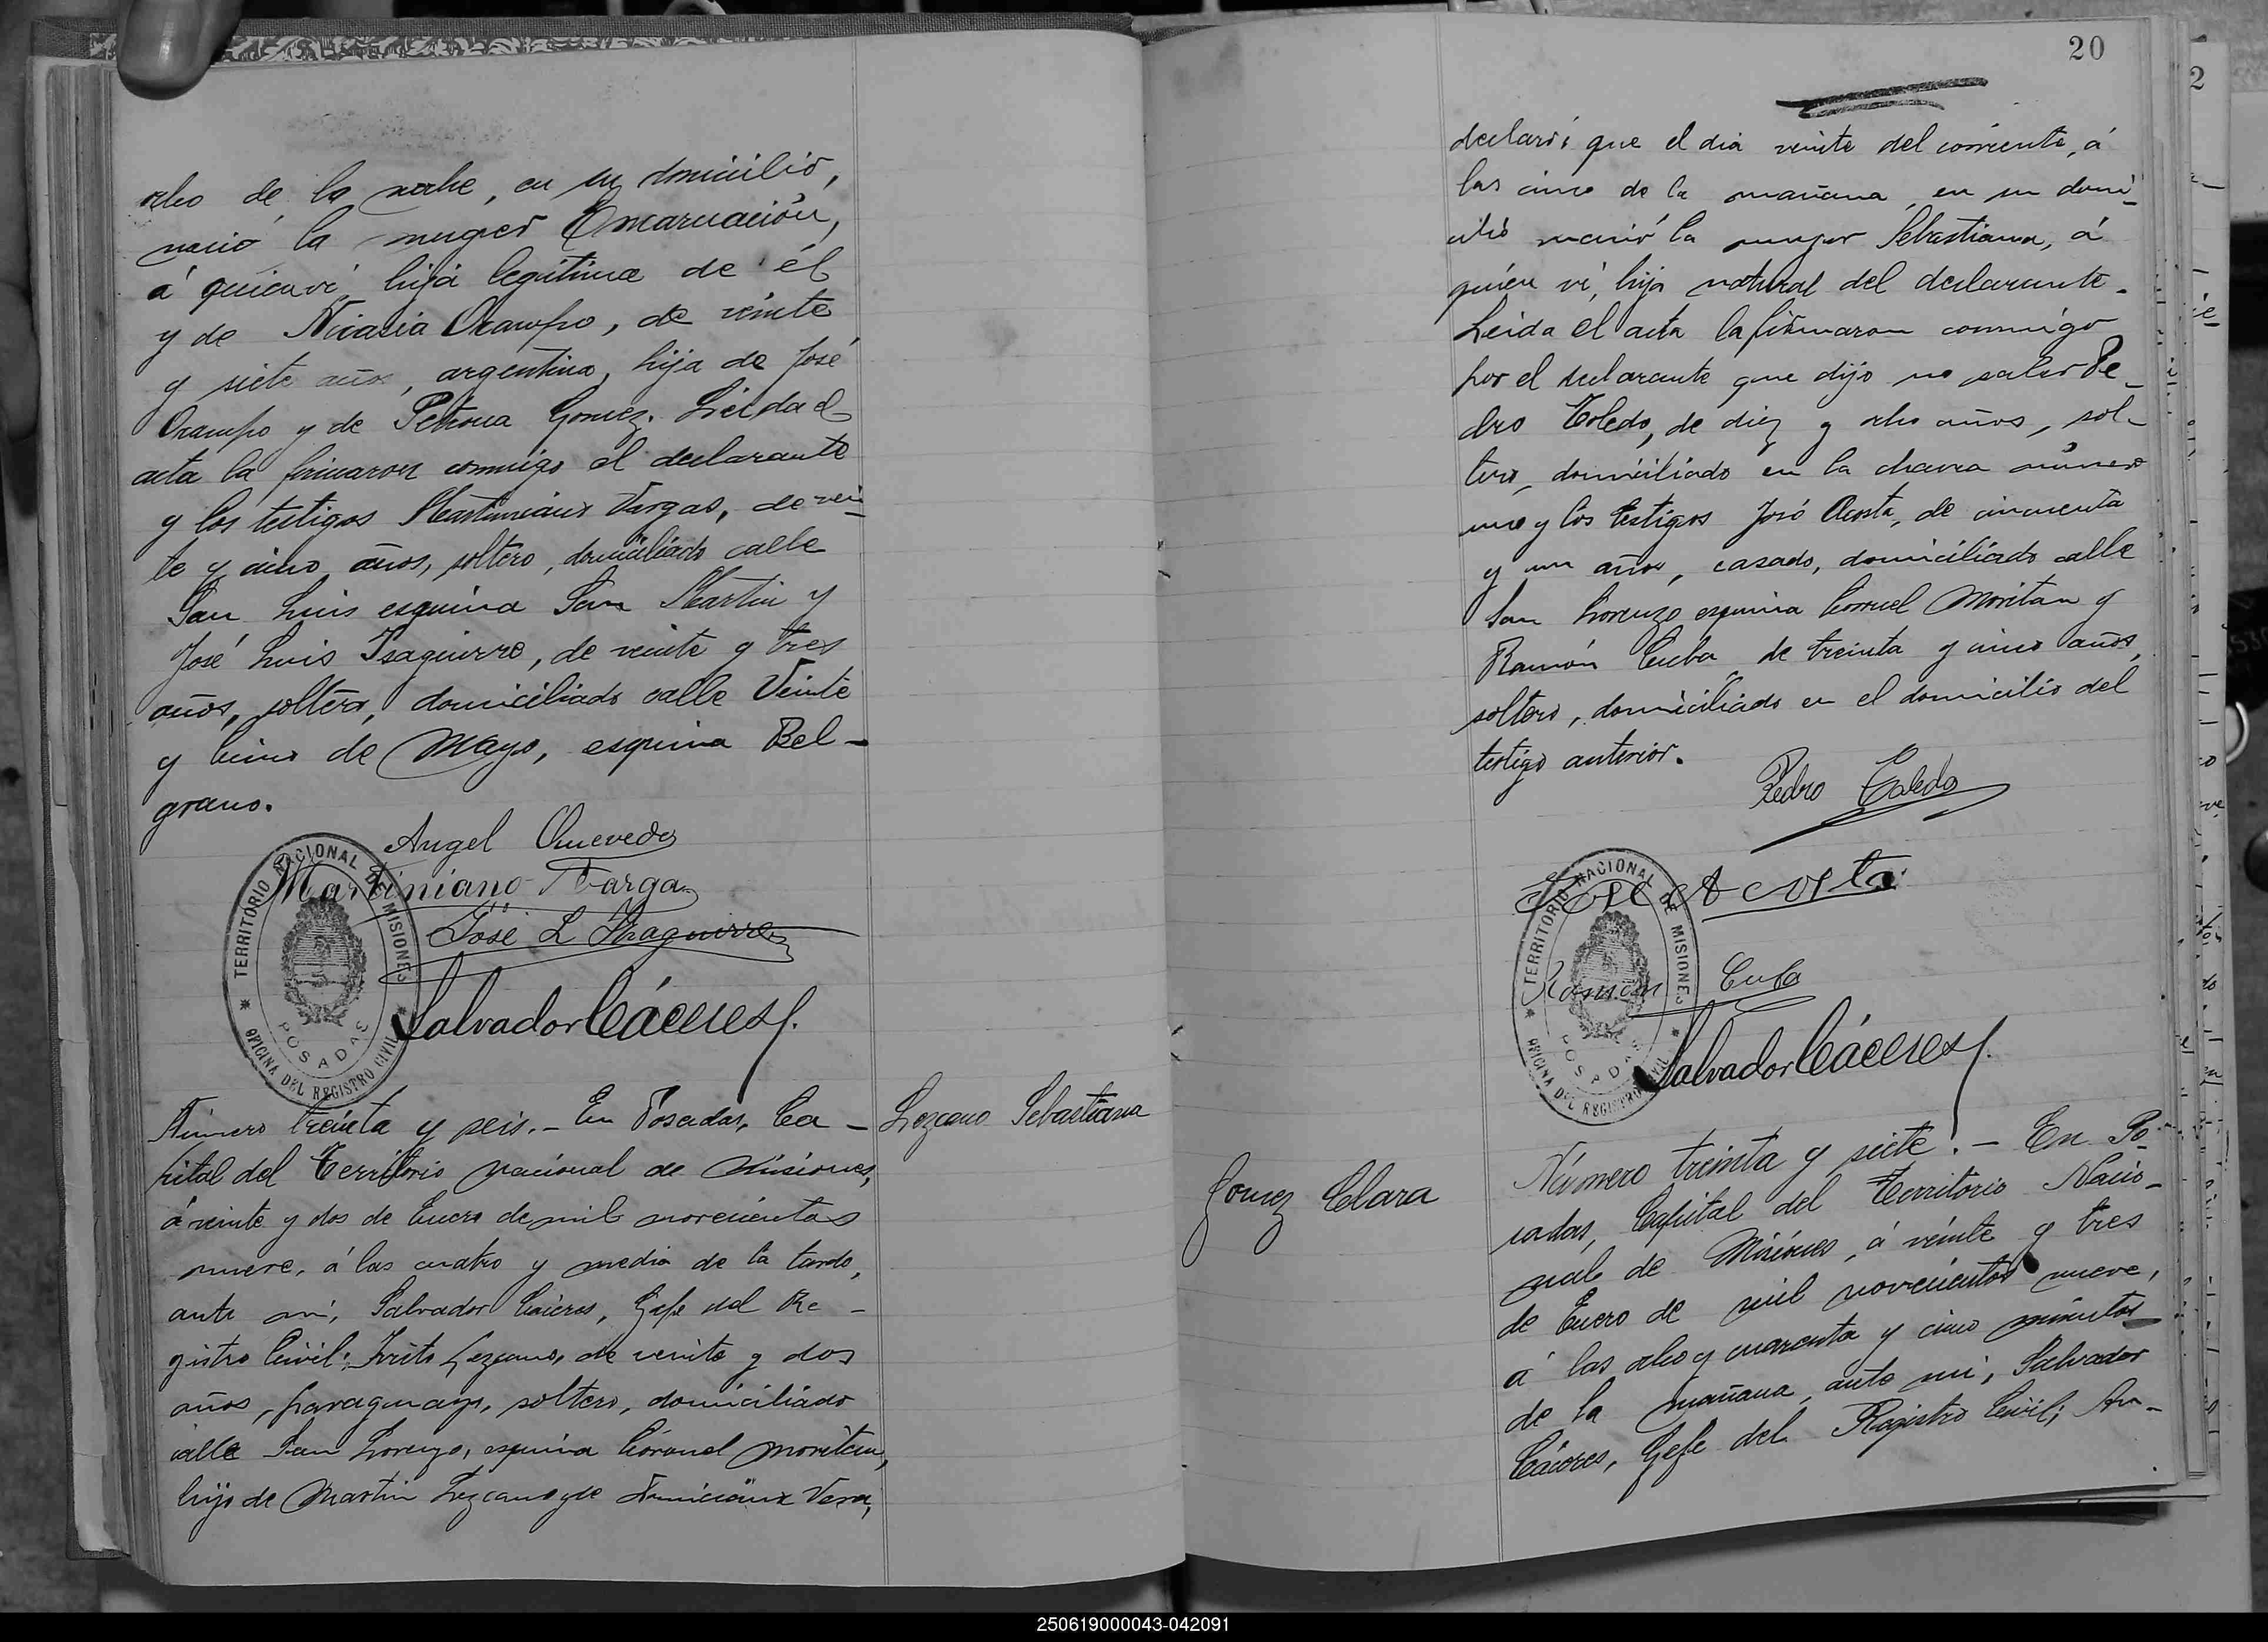 ocho de la noche, en su domicilio,
nació la muger Encarnación,
á quien ví, hija legítima de él
y de Nicasia Ocampo, de veinte
y siete años, argentina, hija de José
Ocampo y de Petrona Gomez. Leida el
acta la firmaron conmigo el declarante
y los testigos Martiniano Vargas, de vein-
te y cinco años, soltero, domiciliado calle
San Luis esquina San Martin y
José Luis Ysaguirre, de veinte y tres
años, soltero, domiciliado calle Veinte
y cinco de Mayo, esquina Bel-
grano.
Angel Quevedo
Martiniano Vargas
José L Ysaguirre
Salvador Cáceres
TERRITORIO NACIONAL DE MISIONES
POSADAS
OFICINA DEL REGISTRO CIVIL
Lezcano Sebastiana
Número treinta y seis.- En Posadas, Ca-
pital del Territorio Nacional de Misiones,
á veinte y dos de Enero de mil novecientos
nueve, á las cuatro y media de la tarde,
ante mi, Salvador Cáceres, Gefe del Re-
gistro Civil; Lezcano, de veinte y dos
años, paraguayo, soltero, domiciliado
calle San Lorenzo, esquina Coronel Moritan,
hijo de Martin Lezcano y de Vera,
20
declaró: que el dia veinte del corriente, á
las cinco de la mañana, en su domi-
cilio nació la muger Sebastiana, á
quién ví, hija natural del declarante.
Leida el acta la firmaron conmigo
por el declarante que dijo no saber Pe-
dro Toledo, de diez y ocho años, sol-
tero, domiciliado en la chacra número
uno y los testigos José Acosta, de cincuenta
y un años, casado, domiciliado calle
San Lorenzo esquina Coronel Moritan y
Ramón Cuba de treinta y cinco años,
soltero, domiciliado en el domicilio del
testigo anterior.
Pedro Toledo
José Acosta
Ramón Cuba
Salvador Cáceres
TERRITORIO NACIONAL DE MISIONES
POSADAS
OFICINA DEL REGISTRO CIVIL
Gomez Clara
Número treinta y siete.- En Po-
sadas, Capital del Territorio Nacio-
nal de Misiones, á veinte y tres
de Enero de mil novecientos nueve,
á las ocho y cuarenta y cinco minutos
de la mañana, ante mi, Salvador
Cáceres, Gefe del Registro Civil; An-
250619000043-042091